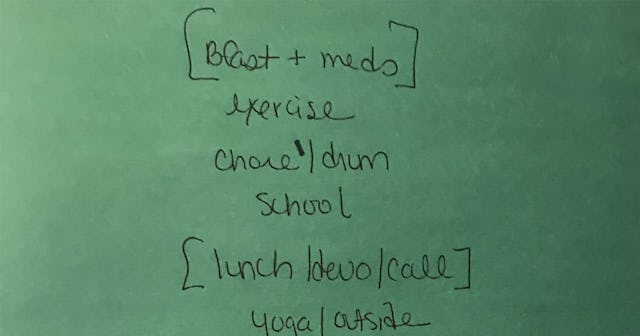 [Bfast + meds]
exercise
chore/drum
school
[lunch/devo/call]
yoga/outside